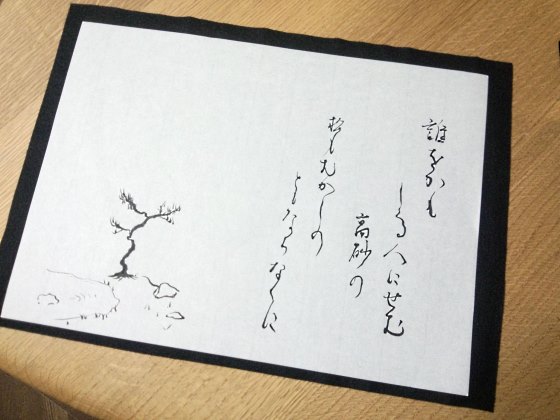 誰をかも
しる人にせむ
高砂の
松もむかしの
ともならなくに